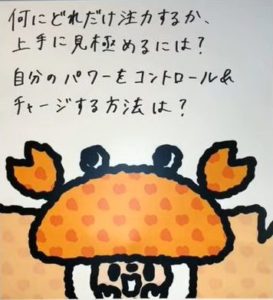 何にどれだけ注力するか、
上手に見極めるには？
自分のパワーをコントロール&
チャージする方法は？